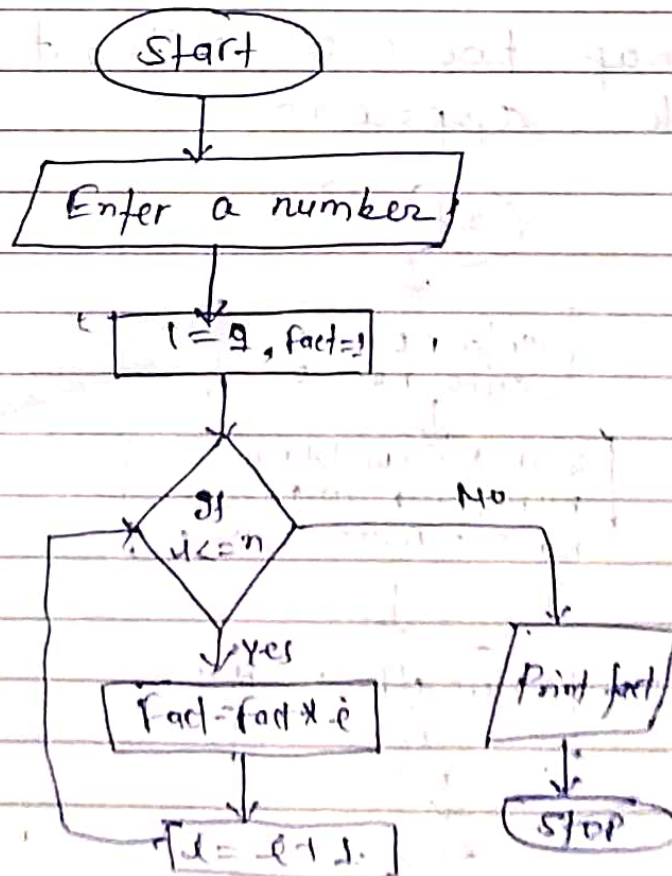 Start
Enter a number
i = 1, fact=1
If
i<=n
NO
Yes
Fact=fact * i
Print fact
i = i+1.
STOP